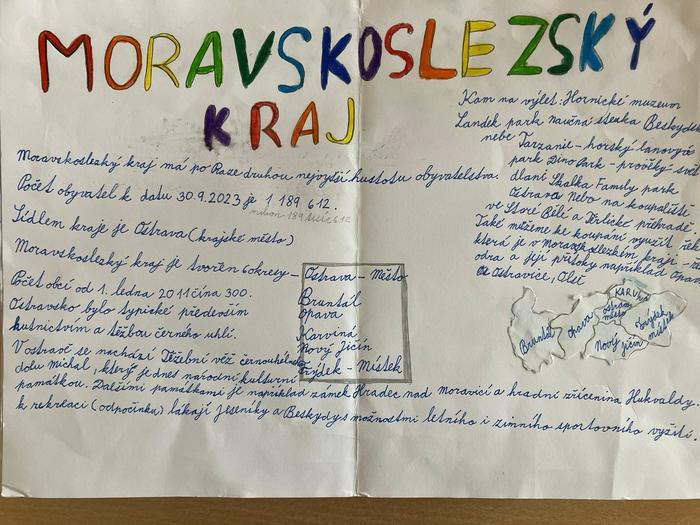 MORAVSKOSLEZSKÝ
KRAJ
Moravskoslezký kraj má po Praze druhou nejvyšší hustotu obyvatelstva.
Počet obyvatel k datu 30.9.2023 je 1 189 612.
milion 189 tisíc 612
Sídlem kraje je Ostrava (krajské město)
Moravskoslezký kraj je tvořen 6 okresy -
Ostrava - Město
Bruntál
Opava
Karviná
Nový Jičín
Frýdek - Místek
Počet obcí od 1. ledna 2011 činá 300.
Ostravsko bylo typické především
hutnictvím a těžbou černého uhlí.
V ostravě se nachází Těžební věž černouhelného
dolu Michal, který je dnes národní kulturní
památkou. Dalšími památkami je například zámek Hradec nad Moravicí a hradní zřícenina Hukvaldy.
k rekreaci (odpočinku) lákají Jeseníky a Beskydy s možnostmi letního i zimního sportovního vyžití.
Kam na výlet: Hornické muzeum
Landek park naučná stezka Beskydy
nebe Tarzanie - horský lanový
park DinoPark - prožitky svět
dlaní Skalka Family park
Ostrava nebo na koupaliště
ve Staré Bělé a Těrlické přehradě.
Také můžeme ke koupání využít řek
která je v moravskoslezkém kraji - ře
odra a její přítoky například Opava
Ostravice, Olše
Bruntál
Opava
ostrava
město
KARViná
Nový jičín
Frýdek
místek